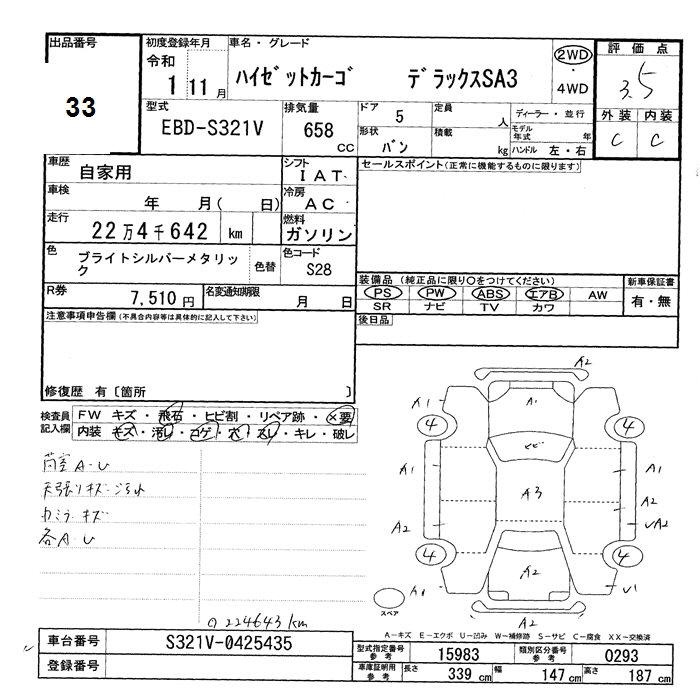 出品番号
33
初度登録年月
令和
1 11月
車名・グレード
ハイゼットカーゴ デラックスSA3
2WD
・
4WD
評価点
3.5
外装 内装
C C
型式
EBD-S321V
排気量
658
CC
ドア
5
定員
人
ディーラー・並行
形状
バン
積載
kg
モデル年式 年
ハンドル 左・右
車歴
自家用
シフト
IAT
セールスポイント(正常に機能するものに限ります)
車検
年 月( 日)
冷房
AC
走行
22万4千642 km
燃料
ガソリン
色
ブライトシルバーメタリック
色替
色コード
S28
R券
7,510円
名変通知期限
月 日
装備品 (純正品に限り○をつけてください)
PS PW ABS エアB AW
SR ナビ TV カワ
新車保証書
有・無
後日品
注意事項申告欄(不具合内容等は具体的に記入して下さい)
修復歴 有〔箇所 〕
検査員記入欄
FW キズ・飛石・ヒビ割・リペア跡・×要
内装 キズ・汚レ・コゲ・穴・スレ・キレ・破レ
荷室A・U
天張リキズ・汚れ
カミラ キズ
各A・U
224643km
A2
A1 A1 A1
4 4
ヒビ
A1 A3 A1
A2 A2
A2
4 4
A2
A1 U1
A2
スペア
A-キズ E-エクボ U-凹み W-補修跡 S-サビ C-腐食 XX-交換済
車台番号
S321V-0425435
登録番号
型式指定番号 参考
15983
類別区分番号 参考
0293
車庫証明用 参考
長さ 339 cm 幅 147 cm 高さ 187 cm